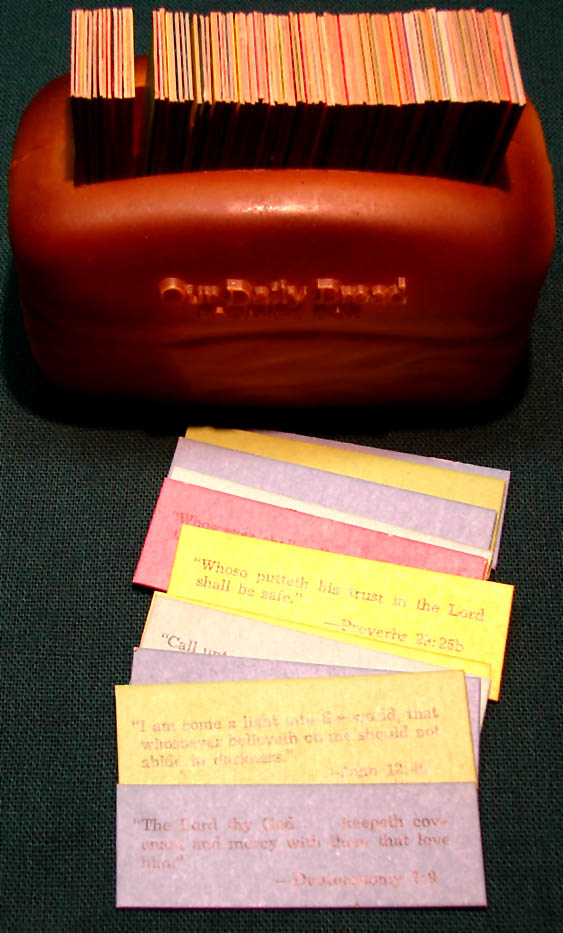 Our Daily Bread
"Whosoever
"Whoso putteth his trust in the Lord
shall be safe."
—Proverbs 29:25b
"Call
"I am come a light into the world, that
whosoever believeth on me should not
abide in darkness."
—John 12:46
"The Lord thy God . . . keepeth cov-
enant and mercy with them that love
him."
—Deuteronomy 7:9